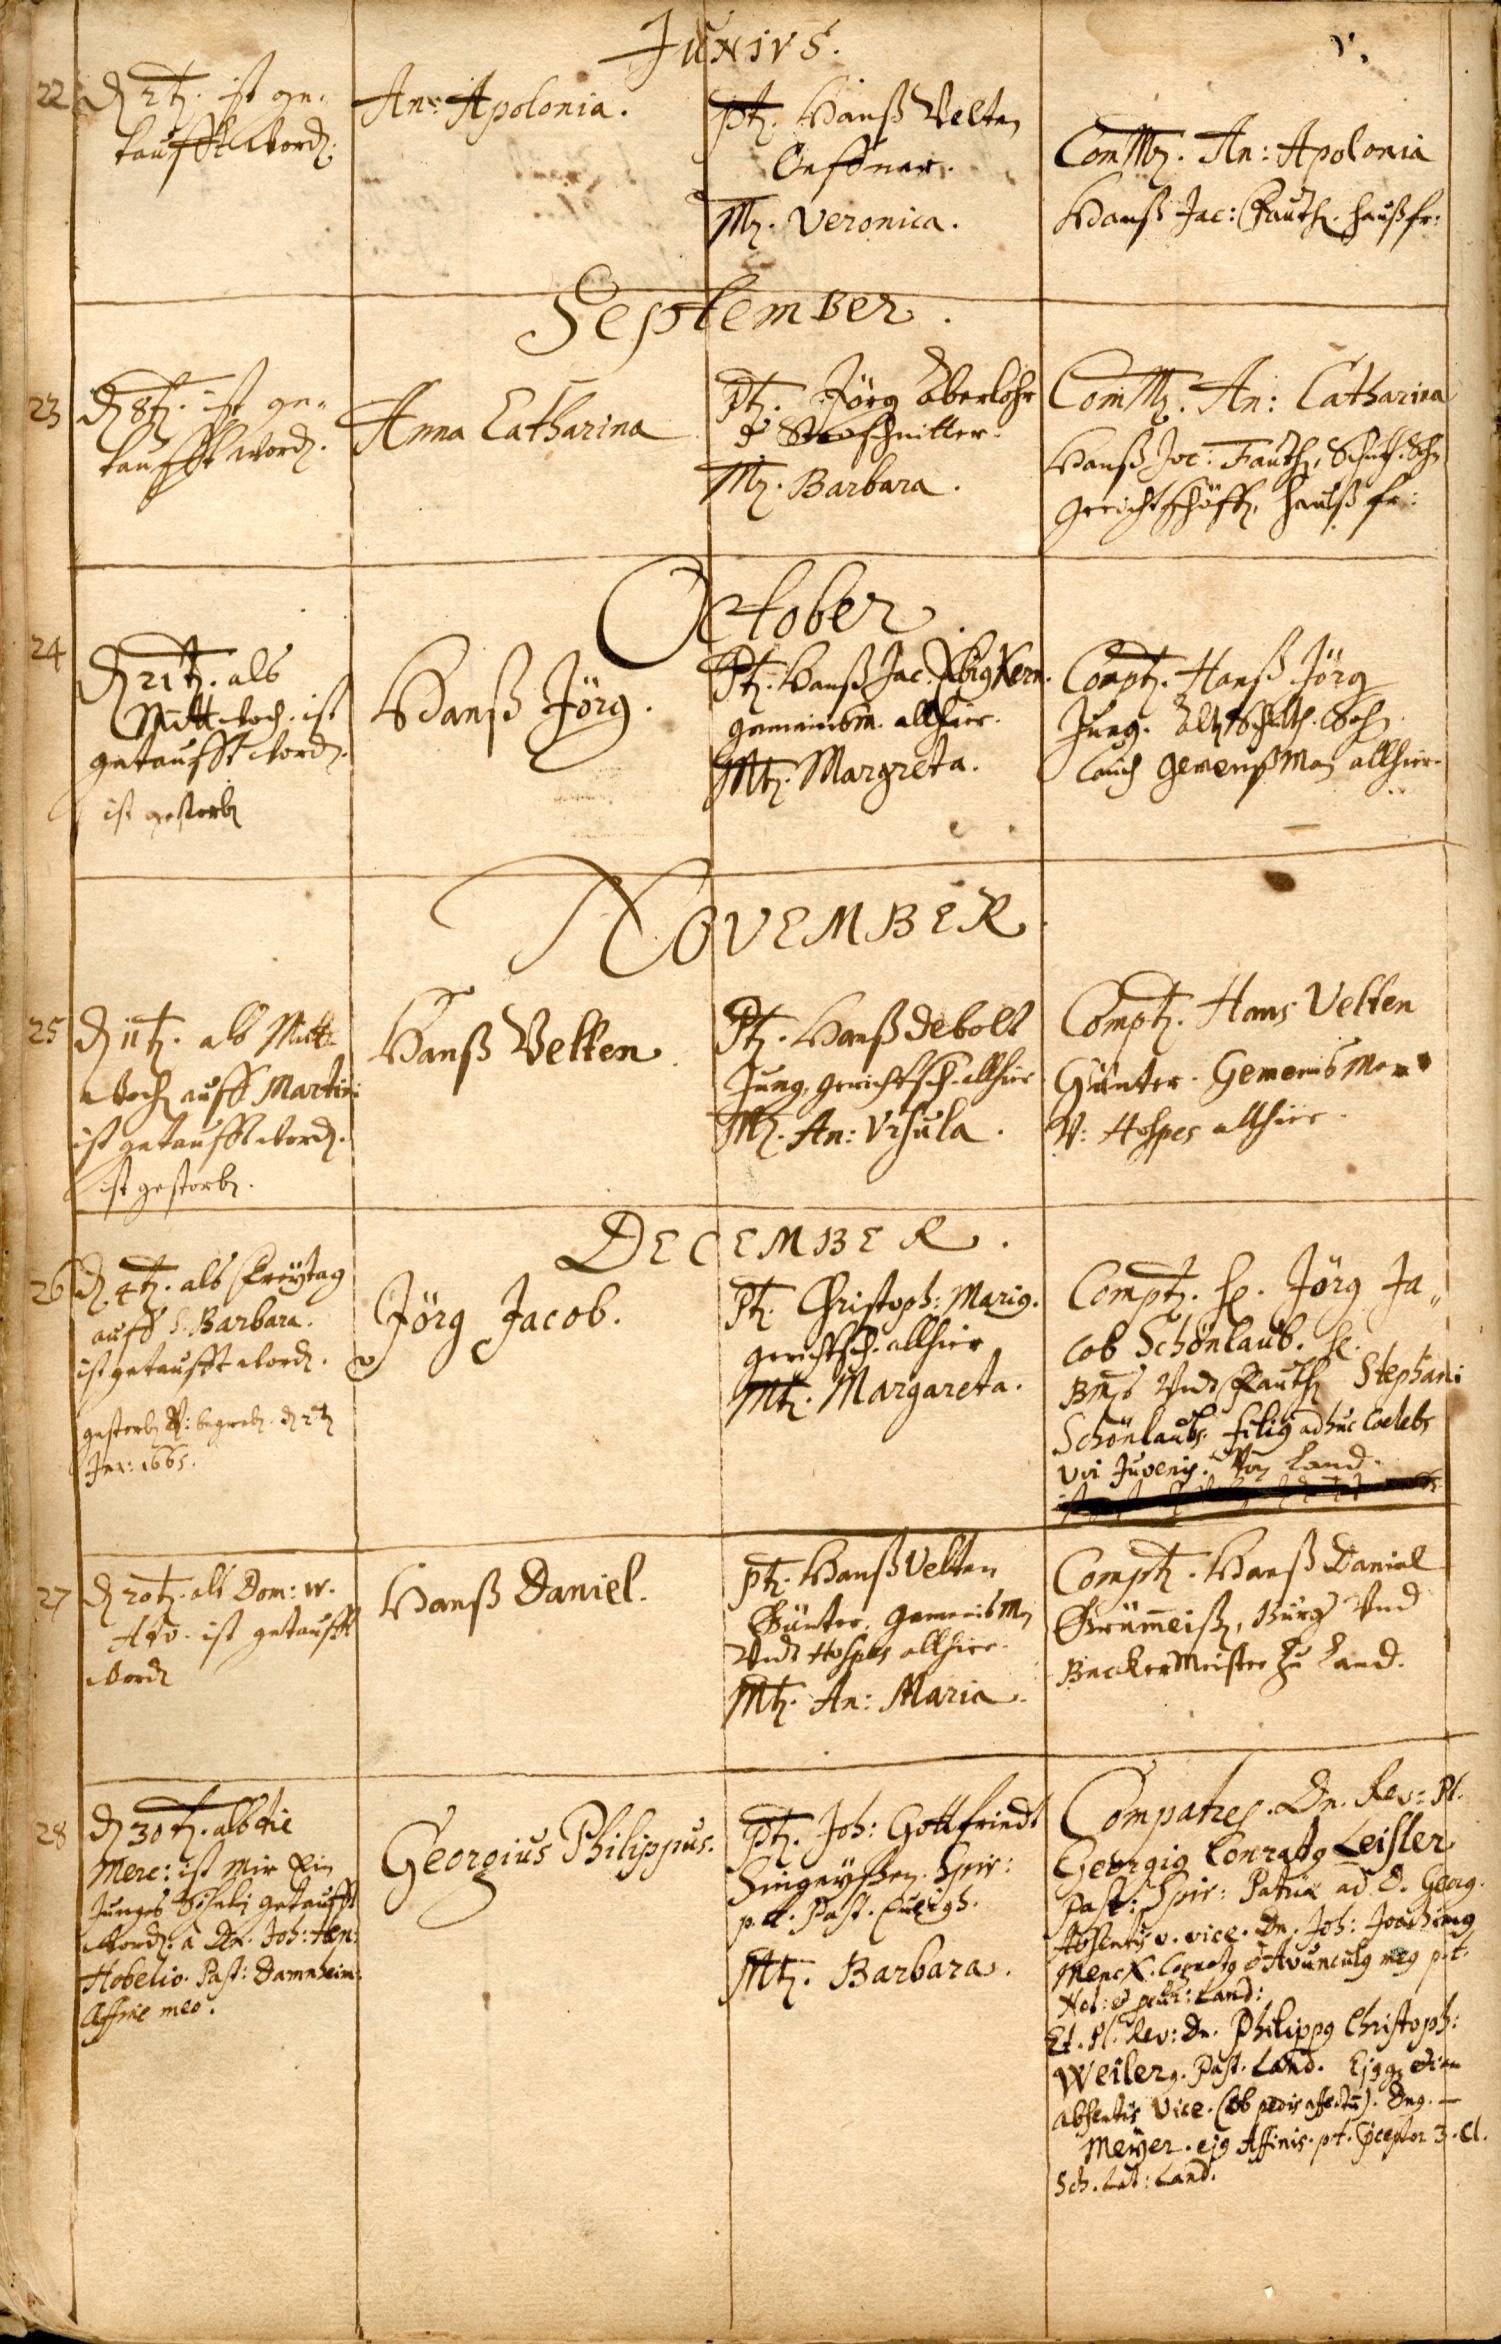 Junius.
22
ist ge-
taufft word.
An: Apolonia.
ptr. Hanß Velten
Mr. Veronica.
ComMr. An: Apolonia
Hanß Jac: Fauth. haußfr:
September.
23
ist ge-
taufft word.
Anna Catharina
Ptr. Jörg Oberlohr
Mr. Barbara.
ComMr. An: Catharina
Hanß Jac: Fauth,
gerichtschöff, haußfr:
October
24
D 21t. als
Mittwoch. ist
getaufft word.
ist gestorb
Hanß Jörg.
Ptr. Hanß Jac.
gemeinsm. allhier.
Mtr. Margreta.
Comptr. Hanß Jörg
Jung.
allhier.
NOVEMBER
25
D 11t. als Mitt-
woch auff Martini
ist getaufft word.
ist gestorb.
Hanß Velten
Ptr. Hanß Debolt
Jung, gerichtsch. allhier
Mtr. An: Ursula.
Comptr. Hans Velten
Günter. Gemeinsman
V: Hospes allhier.
DECEMBER.
26
D 4t. als Freytag
auff S. Barbara.
ist getaufft word.
gestorb V: begrab. d 2t
Jan: 1665.
Jörg Jacob.
Ptr. Christoph: Marig.
gerichtsch. allhier
Mtr. Margareta.
Comptr. H. Jörg Ja„
cob Schönlaub.
Vndt Fauth Stephani
Schönlaubs. filig adhuc Caelebs
Juvenis. Von Land.
27
D 20t. als Dom: IV.
Adv. ist getaufft
word
Hanß Daniel.
ptr. Hanß Velten
Günter, Gemeinsm
Vndt Hospes allhier.
Mtr. An: Maria.
Comptr. Hanß Daniel
Burger Vnd
Becker Meister zu Land.
28
D 30t. als die
Merc: ist Mir Ein
Junges getaufft
word. a Dn. Joh: Hen:
Hobelio. Past: Damnheim:
Affine meo.
Georgius Philippus.
Ptr. Joh: Gottfriedt
Spir:
p. t. Past.
Mtr. Barbara.
Compatres. Dn. Rev: Pl.
Georgig Conratg Leisler
Past: Spir: Patriæ ad D. Georg.
Absentis v. vice. Dn. Joh: Joachimg
Menck. Cognatg & Avunculg meg p.t.
Not: & Land:
Et. Pl. Rev: Dn. Philippg Christoph:
Weilerg. Past. Land. Ejgq etiam
absentis Vice. (ob pedis affectu). Dng. —
Meÿer. ejg Affinis. pt. Pceptor 3. Cl.
Sch. Lat: Land.